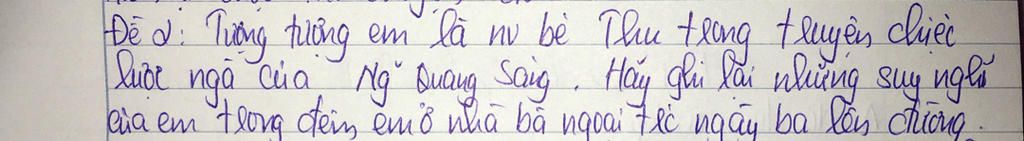 Đề 2: Tưởng tượng em là nv bé Thu trong truyện chiếc
lược ngà của Ng~ Quang Sáng. Hãy ghi lại những suy nghĩ
của em trong đêm em ở nhà bà ngoại trc ngày ba lên đường.